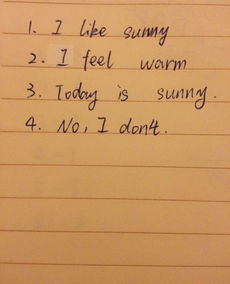 1. I like sunny
2. I feel warm
3. Today is sunny.
4. No, I don4.